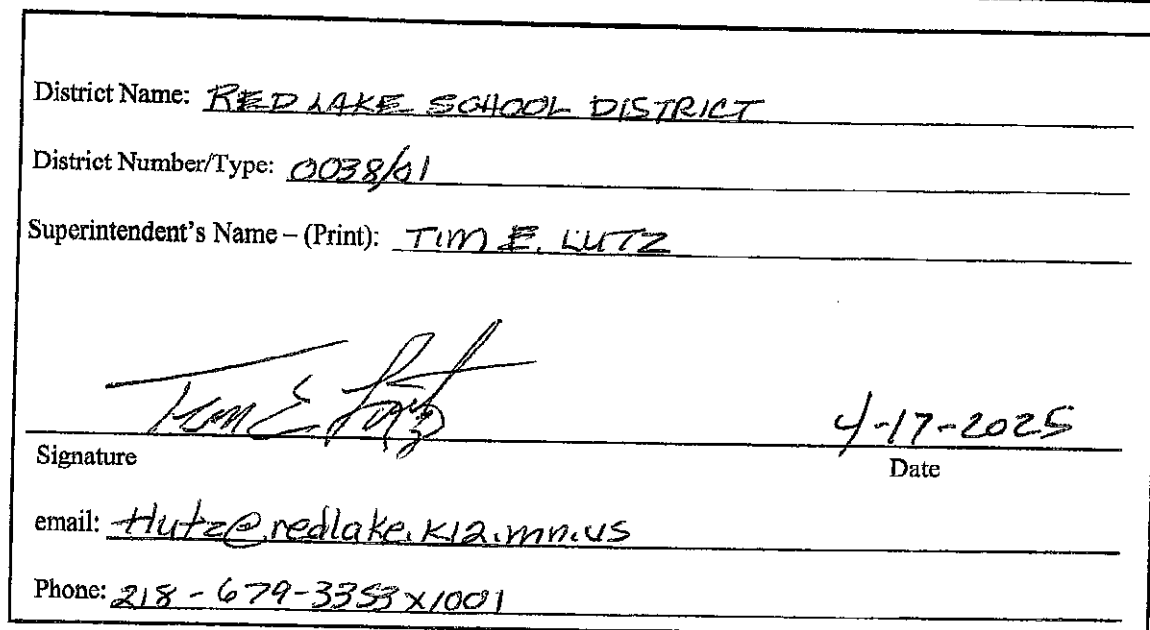 District Name: RED LAKE SCHOOL DISTRICT
District Number/Type: 0038/01
Superintendent's Name – (Print): TIM E. LUTZ
Tim E Lutz
4-17-2025
Signature Date
email: tlutz@redlake.k12.mn.us
Phone: 218-679-3353 x1001